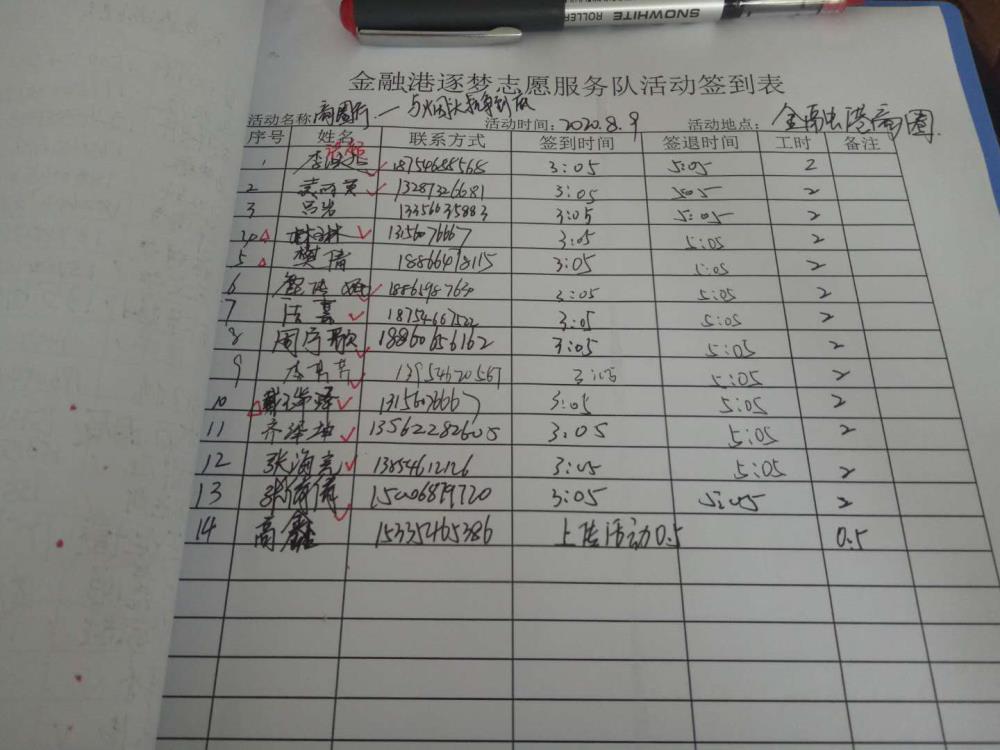 SNOWHITE ROLLER
金融港逐梦志愿服务队活动签到表
活动名称 商圈行 — 活动时间: 2020.8.9 活动地点: 金融港商圈
序号 姓名 联系方式 签到时间 签退时间 工时 备注
1 18754688568 3:05 5:05 2
2 13287326681 3:05 5:05 2
3 吕岩 13356035883 3:05 5:05 2
4 林琳 13156076667 3:05 5:05 2
5 樊倩 18866478115 3:05 5:05 2
6 3:05 5:05 2
7 18754667522 3:05 5:05 2
8 周序歌 18860656162 3:05 5:05 2
9 李亮亮 13954620567 3:05 5:05 2
10 13156076667 3:05 5:05 2
11 齐泽坤 13562282605 3:05 5:05 2
12 张海亮 13854612126 3:05 5:05 2
13 张倩倩 15006879720 3:05 5:05 2
14 高鑫 15335465386 上传活动0.5 0.5